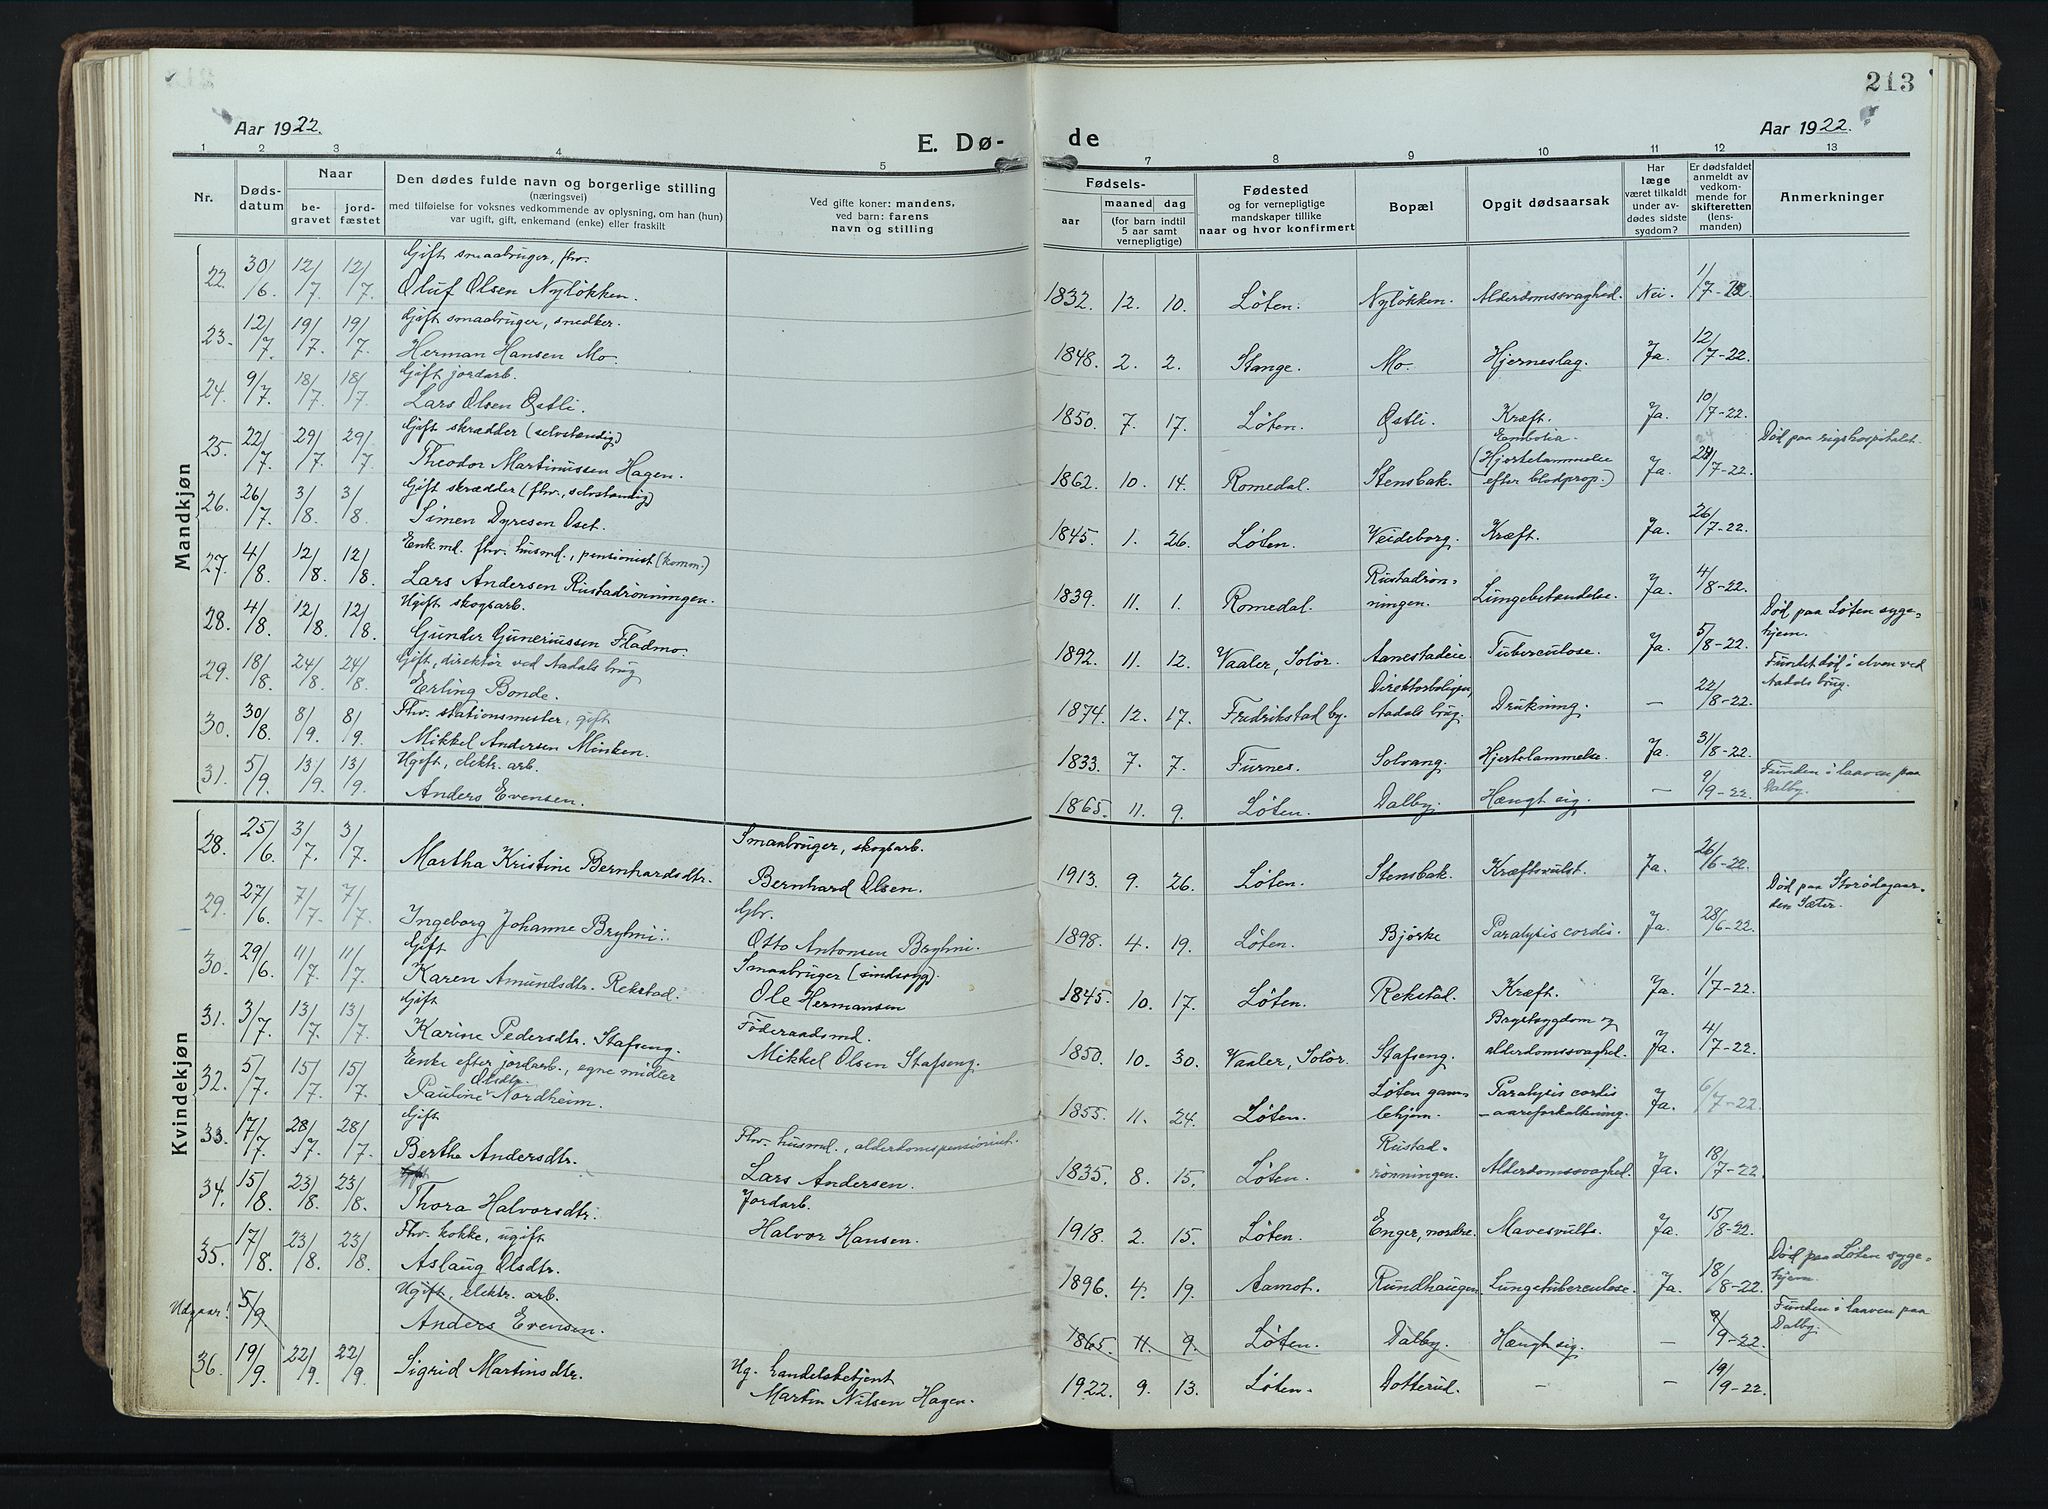 213
Aar 1922.
E. Dø- de
Aar 1922.
1 2 3 4 5 7 8 9 10 11 12 13
Nr.
Døds-
datum
Naar
be-
gravet
jord-
fæstet
Den dødes fulde navn og borgerlige stilling
(næringsvei)
med tilføielse for voksnes vedkommende av oplysning, om han (hun)
var ugift, gift, enkemand (enke) eller fraskilt
Ved gifte koner: mandens,
ved barn: farens
navn og stilling
Fødsels-
aar
maaned
dag
(for barn indtil
5 aar samt
vernepligtige)
Fødested
og for vernepligtige
mandskaper tillike
naar og hvor konfirmert
Bopæl
Opgit dødsaarsak
Har
læge
været tilkaldt
under av-
dødes sidste
sygdom?
Er dødsfaldet
anmeldt av
vedkom-
mende for
skifteretten
(lens-
manden)
Anmerkninger
Mandkjøn
Gift smaabruger, fhv.
22. 30/6 12/7 12/7 Oluf Olsen Nyløkken. 1832. 12. 10. Løten. Nyløkken. Alderdomssvaghed. Nei. 1/7-22.
Gift smaabruger, snedker.
23. 12/7 19/7 19/7 Herman Hansen Mo. 1848. 2. 2. Stange. Mo. Hjerneslag. Ja. 12/7-22.
Gift jordarb.
24. 9/7 18/7 18/7 Lars Olsen Østli. 1850. 7. 17. Løten. Østli. Kræft. Ja. 10/7-22.
Gift skrædder (selvstændig) Embolia. Død paa rigshospitalet.
25. 22/7 29/7 29/7 Theodor Martinussen Hagen. 1862. 10. 14. Romedal. Stensbak. (Hjertelammelse
efter blodprop.) Ja. 24/7-22.
Gift skrædder (fhv., selvstændig)
26. 26/7 3/8 3/8 Simen Dyresen Oset. 1845. 1. 26. Løten. Veideborg. Kræft. Ja. 26/7-22.
Enkemd. fhv. husmd., pensionist (komm.)
27. 4/8 12/8 12/8 Lars Andersen Rustadrønningen. 1839. 11. 1. Romedal. Rustadrøn-
ningen. Lungebetændelse. Ja. 4/8-22.
Ugift skogsarb. Død paa Løten syge-
hjem.
28. 4/8 12/8 12/8 Gunder Guneriussen Fladmo. 1892. 11. 12. Vaaler, Solør. Aanestadeie. Tuberculose. Ja. 5/8-22.
Gift, direktør ved Aadals brug Fundet død i elven ved
Aadals brug.
29. 18/8 24/8 24/8 Erling Bonde. 1874. 12. 17. Fredrikstad by. Direktørboligen,
Aadals brug. Drukning. — 22/8-22.
Fhv. stationsmester, gift
30. 30/8 8/9 8/9 Mikkel Andersen Minken. 1833. 7. 7. Furnes. Solvang. Hjertelammelse. Ja. 31/8-22.
Ugift, elektr. arb. Funden i laaven paa
Dalby.
31. 5/9 13/9 13/9 Anders Evensen. 1865. 11. 9. Løten. Dalby. Hængt sig. — 9/9-22.
Kvindekjøn
Smaabruger, skogsarb.
28. 25/6 3/7 3/7 Martha Kristine Bernhardsdtr. Bernhard Olsen. 1913. 9. 26. Løten. Stensbak. Kræftsvulst. Ja. 26/6-22.
Gbr. Død paa Storødegaar-
den Sæter.
29. 27/6 7/7 7/7 Ingeborg Johanne Bryhni. Otto Antonsen Bryhni. 1898. 4. 19. Løten. Bjørke Paralysis cordis. Ja. 28/6-22.
Gift Smaabruger (sindssyg).
30. 29/6 11/7 11/7 Karen Amundsdtr. Rekstad. Ole Hermansen 1845. 10. 17. Løten. Rekstad. Kræft. Ja. 1/7-22.
Gift Føderaadsmd.
31. 3/7 13/7 13/7 Karine Pedersdtr. Stafseng. Mikkel Olsen Stafseng. 1850. 10. 30. Vaaler, Solør. Stafseng. Brystsygdom og
alderdomssvaghed. Ja. 4/7-22.
Enke efter jordarb., egne midler
32. 5/7 15/7 15/7 Pauline Olsdtr. Nordheim. 1855. 11. 24. Løten. Løten gam-
lehjem. Paralysis cordis
— aareforkalkning. Ja. 6/7-22.
Gift Fhv. husmd., alderdomspensionist.
33. 17/7 28/7 28/7 Bertha Andersdtr. Lars Andersen. 1835. 8. 15. Løten. Rustad-
rønningen. Alderdomssvaghed. Ja. 18/7-22.
Gift Jordarb.
34. 15/8 23/8 23/8 Thora Halvorsdtr. Halvor Hansen. 1918. 2. 15. Løten. Enger, nordre. Mavesvulst. Ja. 15/8-22.
Fhv. kokke, ugift Død paa Løten syge-
hjem.
35. 17/8 23/8 23/8 Aslaug Olsdtr. 1896. 4. 19. Aamot. Rundhaugen Lungetuberculose. Ja. 18/8-22.
Ugift, elektr. arb. Funden i laaven paa
Dalby.
Udgaar! 5/9 Anders Evensen. 1865. 11. 9. Løten. Dalby. Hængt sig. — 9/9-22.
36. 19/9 22/9 22/9 Sigrid Martinsdtr. Ug. handelsbetjent
Martin Nilsen Hagen. 1922. 9. 13. Løten. Dotterud. — — 19/9-22.